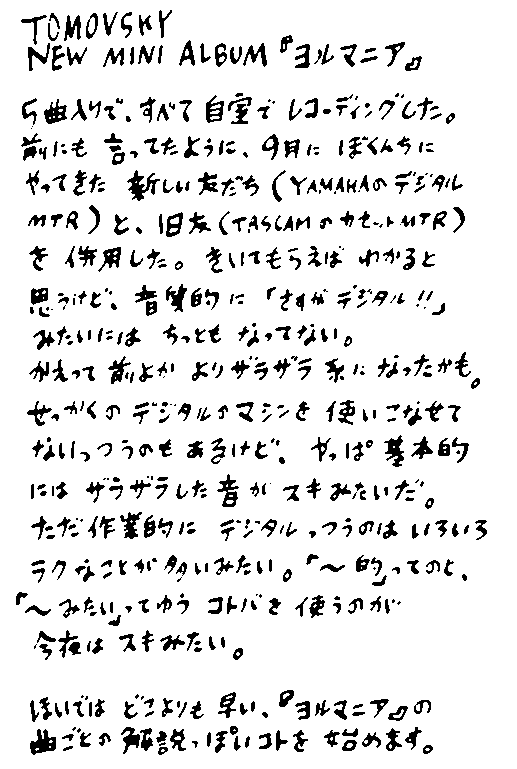 TOMOVSKY
NEW MINI ALBUM『ヨルマニア』
5曲入りで、すべて自室でレコーディングした。
前にも言ってたように、9月にぼくんちに
やってきた新しい友だち(YAMAHAのデジタル
MTR)と、旧友(TASCAMのカセットMTR)
を併用した。きいてもらえばわかると
思うけど、音質的に「さすがデジタル!!」
みたいにはちっともなってない。
かえって前よかよりザラザラ系になったかも。
せっかくのデジタルのマシンを使いこなせて
ないっつうのもあるけど、やっぱ基本的
にはザラザラした音がスキみたいだ。
ただ作業的にデジタルっつうのはいろいろ
ラクなことが多いみたい。「〜的」ってのと、
「〜みたい」ってゆうコトバを使うのが
今夜はスキみたい。
ほいではどこよりも早い、『ヨルマニア』の
曲ごとの解説っぽいコトを始めます。